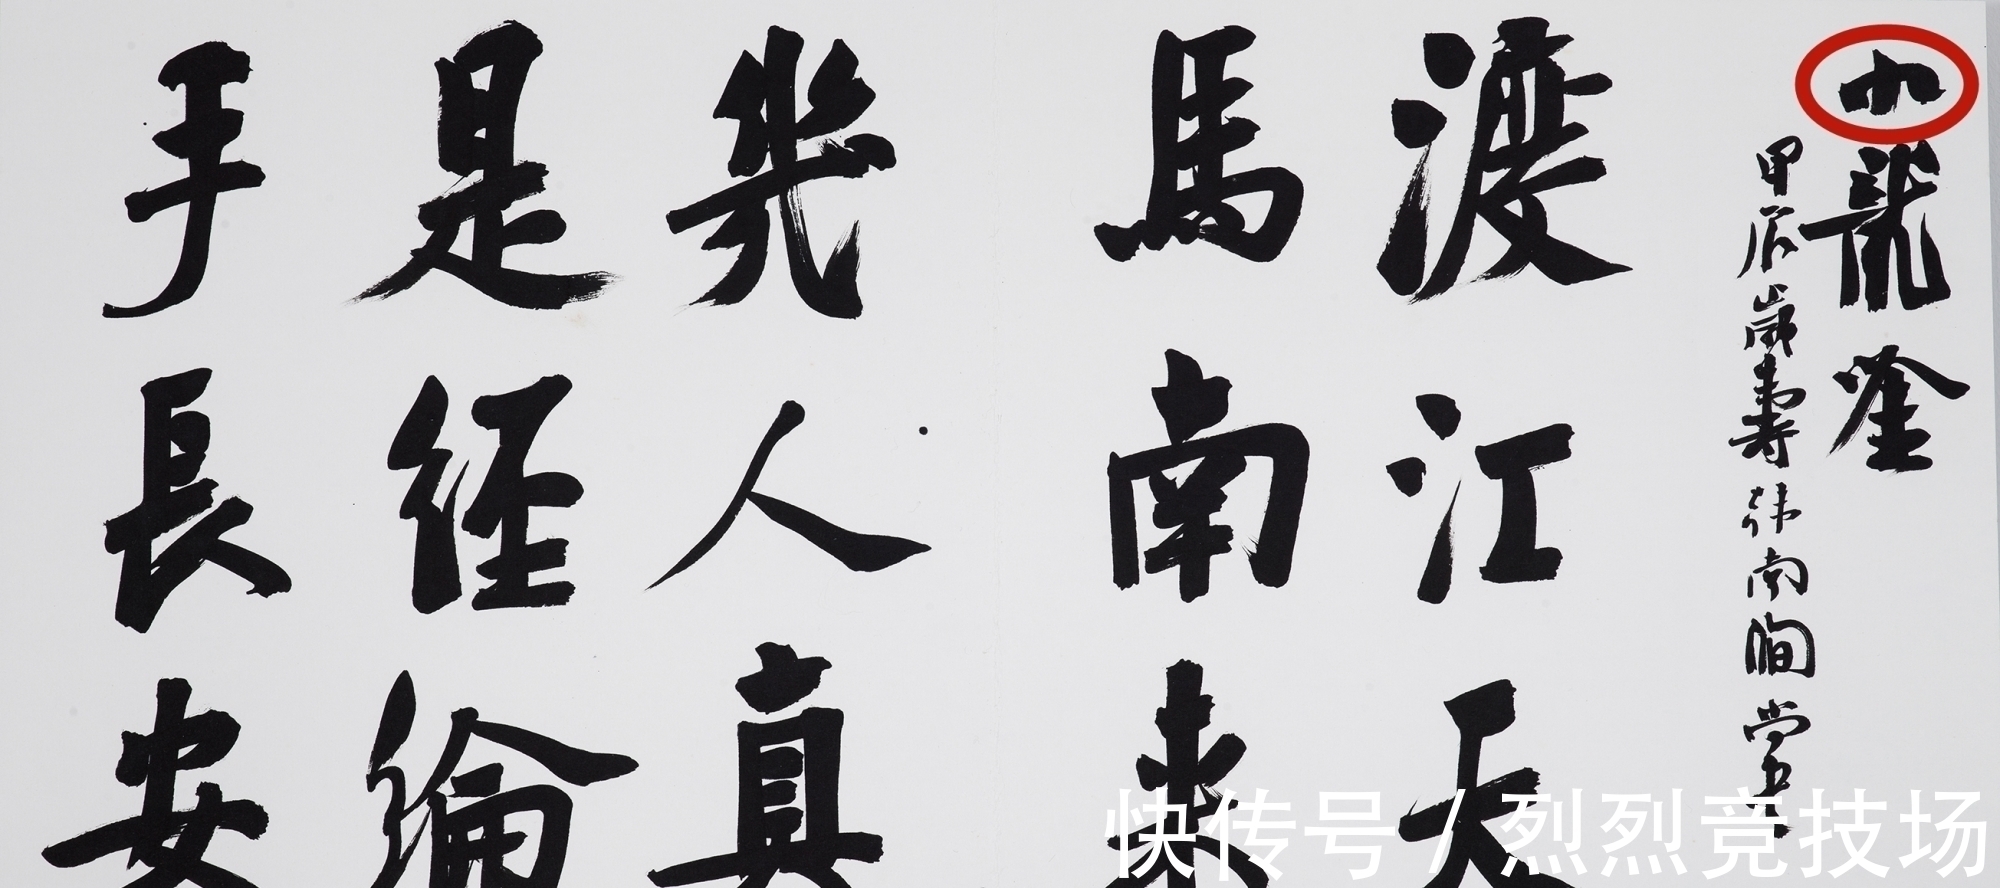 水龍唫
甲辰歲壽韓南澗尚書
渡江天
馬南来
幾人真
是経綸
手長安
快传号 / 烈烈竞技场